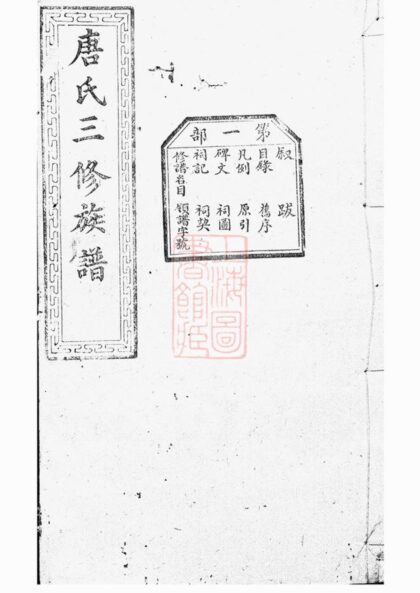 唐氏三修族譜
第一部
敘 跋
目錄 舊序
凡例 原引
碑文 祠圖
祠記 祠契
修譜名目 領譜字號
上海圖書館藏